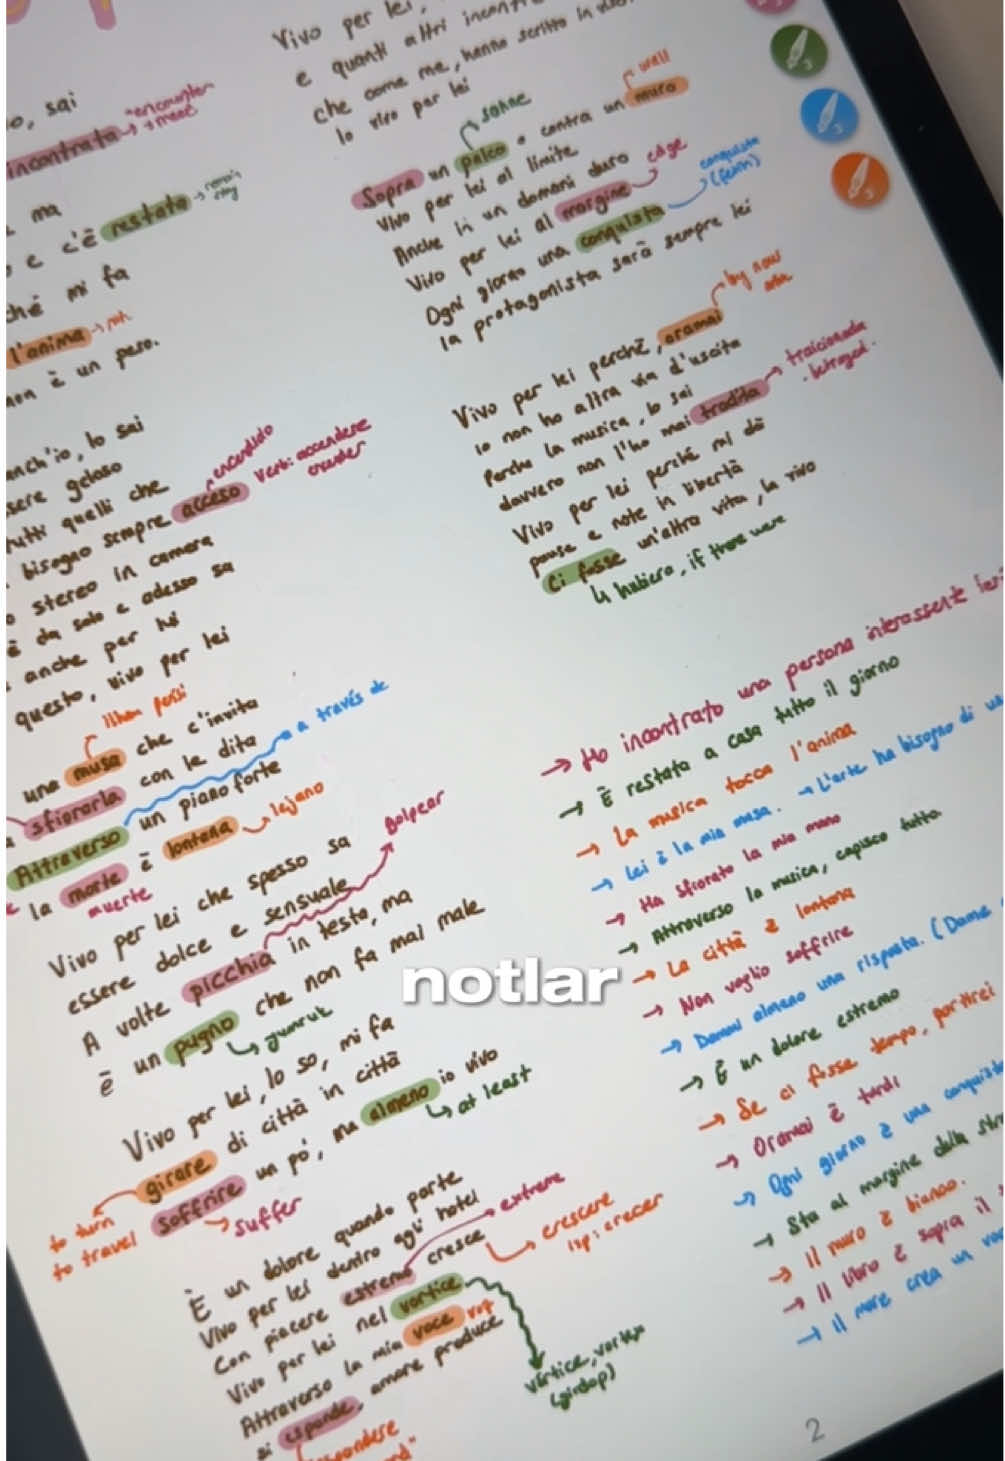 o, sai
incontrata → "encounter
→ meet
ma
e c'è restata → remain
stay
ché mi fa
l'anima → ruh
non è un peso.
anch'io, lo sai
sere geloso
tutti quelli che
bisogno sempre acceso
encendido
verb: accendere
encender
stereo in camera
è da solo e adesso sa
anche per lui
questo, vivo per lei
ilham perisi
una musa che c'invita
sfiorarla con le dita
Attraverso un pianoforte
a través de
la morte è lontana
lejano
muerte
Vivo per lei che spesso sa
essere dolce e sensuale
golpear
A volte picchia in testa, ma
è un pugno che non fa mai male
yumruk
Vivo per lei, lo so, mi fa
girare di città in città
to turn
to travel
soffrire un pò, ma almeno io vivo
suffer
at least
È un dolore quando parte
Vivo per lei dentro agli hotel
Con piacere estremo cresce
extreme
crescere
isp: crecer
Vivo per lei nel vortice
vórtice, vortex
(girdap)
Attraverso la mia voce
si espande, amore produce
Vivo per lei,
e quanti altri incontr
che come me, hanno scritto in viso
Io vivo per lei
Sopra un palco o contra un muro
sahne
wall
Vivo per lei al limite
Anche in un domani duro
Vivo per lei al margine
edge
Ogni giorno una conquista
conquista
(fetih)
la protagonista sarà sempre lei
Vivo per lei perchè, oramai
by now
io non ho altra via d'uscita
Perche la musica, lo sai
davvero non l'ho mai tradita
traicionada
betrayed.
Vivo per lei perché mi dà
pause e note in libertà
Ci fosse un'altra vita, la vivo
hubiera, if there were
→ Ho incontrato una persona interessante
→ È restata a casa tutto il giorno
→ La musica tocca l'anima
→ Lei è la mia musa. → L'arte ha bisogno di
→ Ha sfiorato la mia mano
→ Attraverso la musica, capisco tutto
→ La città è lontana
→ Non voglio soffrire
→ Dammi almeno una risposta. (Dame
→ È un dolore estremo
→ Se ci fosse tempo, partirei
→ Oramai è tardi
→ Ogni giorno è una conquista
→ Sta al margine della str
→ Il muro è bianco.
→ Il libro è sopra il
→ Il mare crea un vor
notlar
2